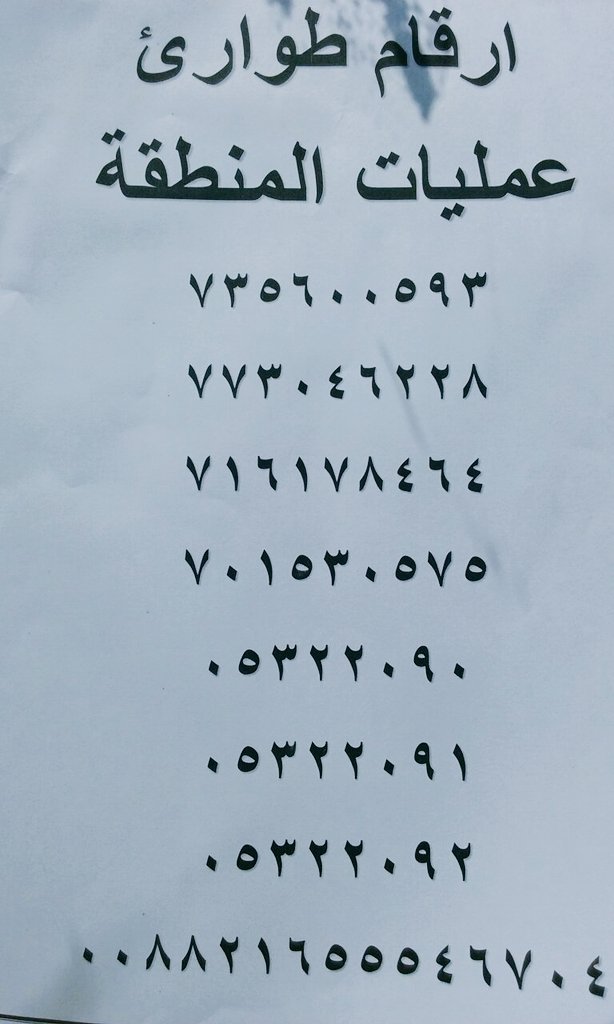 ارقام طوارئ
عمليات المنطقة
٧٣٥٦٠٠٥٩٣
٧٧٣٠٤٦٢٢٨
٧١٦١٧٨٤٦٤
٧٠١٥٣٠٥٧٥
٠٥٣٢٢٠٩٠
٠٥٣٢٢٠٩١
٠٥٣٢٢٠٩٢
٠٠٨٨٢١٦٥٥٥٤٦٧٠٤